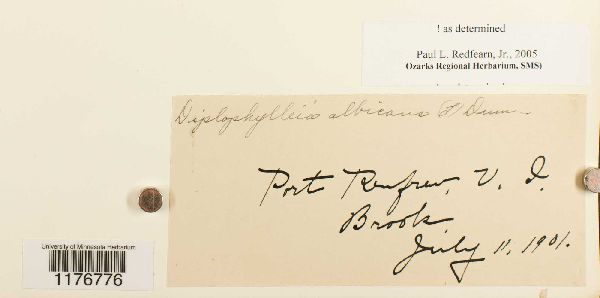 ! as determined
Paul L. Redfearn, Jr., 2005
Ozarks Regional Herbarium, SMS)
Diplophylleia albicans (L) Dum.
Port Renfrew, V. I.
Brook
July 11, 1901.
University of Minnesota Herbarium
1176776